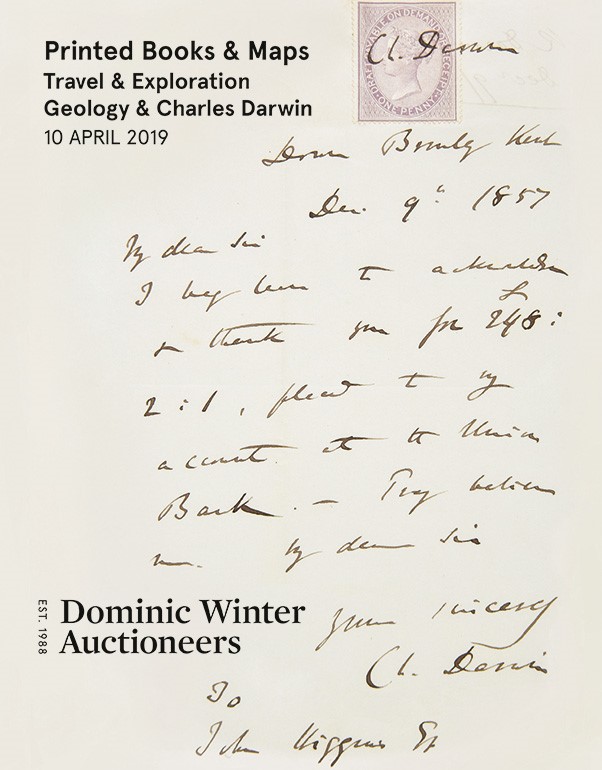 Printed Books & Maps
Travel & Exploration
Geology & Charles Darwin
10 APRIL 2019
PAYABLE ON DEMAND
RECEIPT
DRAFT
ONE PENNY
Ch. Darwin
Down Bromley Kent
Dec. 9th 1857
My dear Sir
I beg leave to acknowledge
& thank you for £248:
2:1, placed to my
account at the Union
Bank. — Pray believe
me. My dear Sir
Yours sincerely
Ch. Darwin
To
John Higgins Esq
EST. 1988
Dominic Winter
Auctioneers